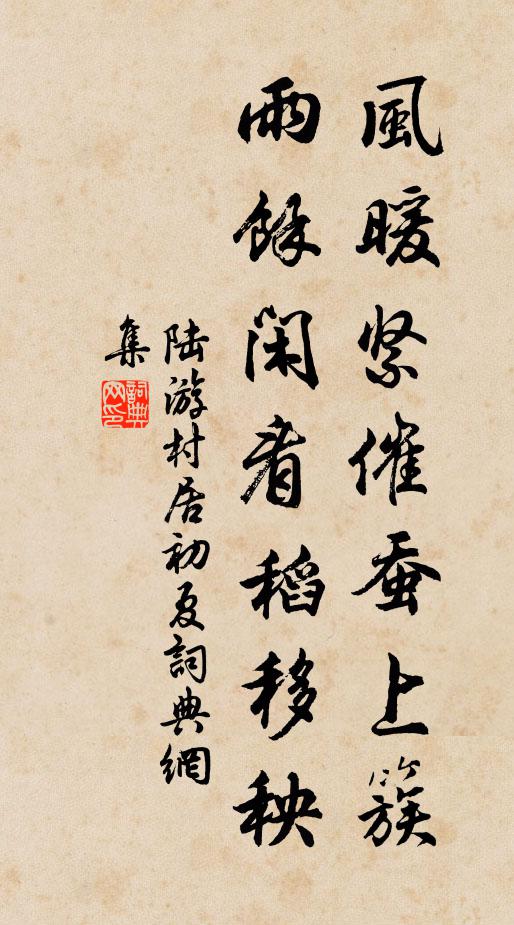 風暖紧催蚕上簇
雨餘闲看稻移秧
陆游村居初夏詞典網
集
詞典
网印